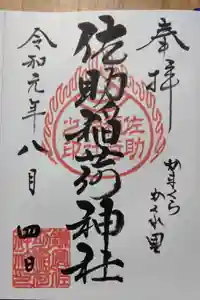 奉拝
かまくら
かくれ里
佐助稲荷神社
令和元年
八月
四日